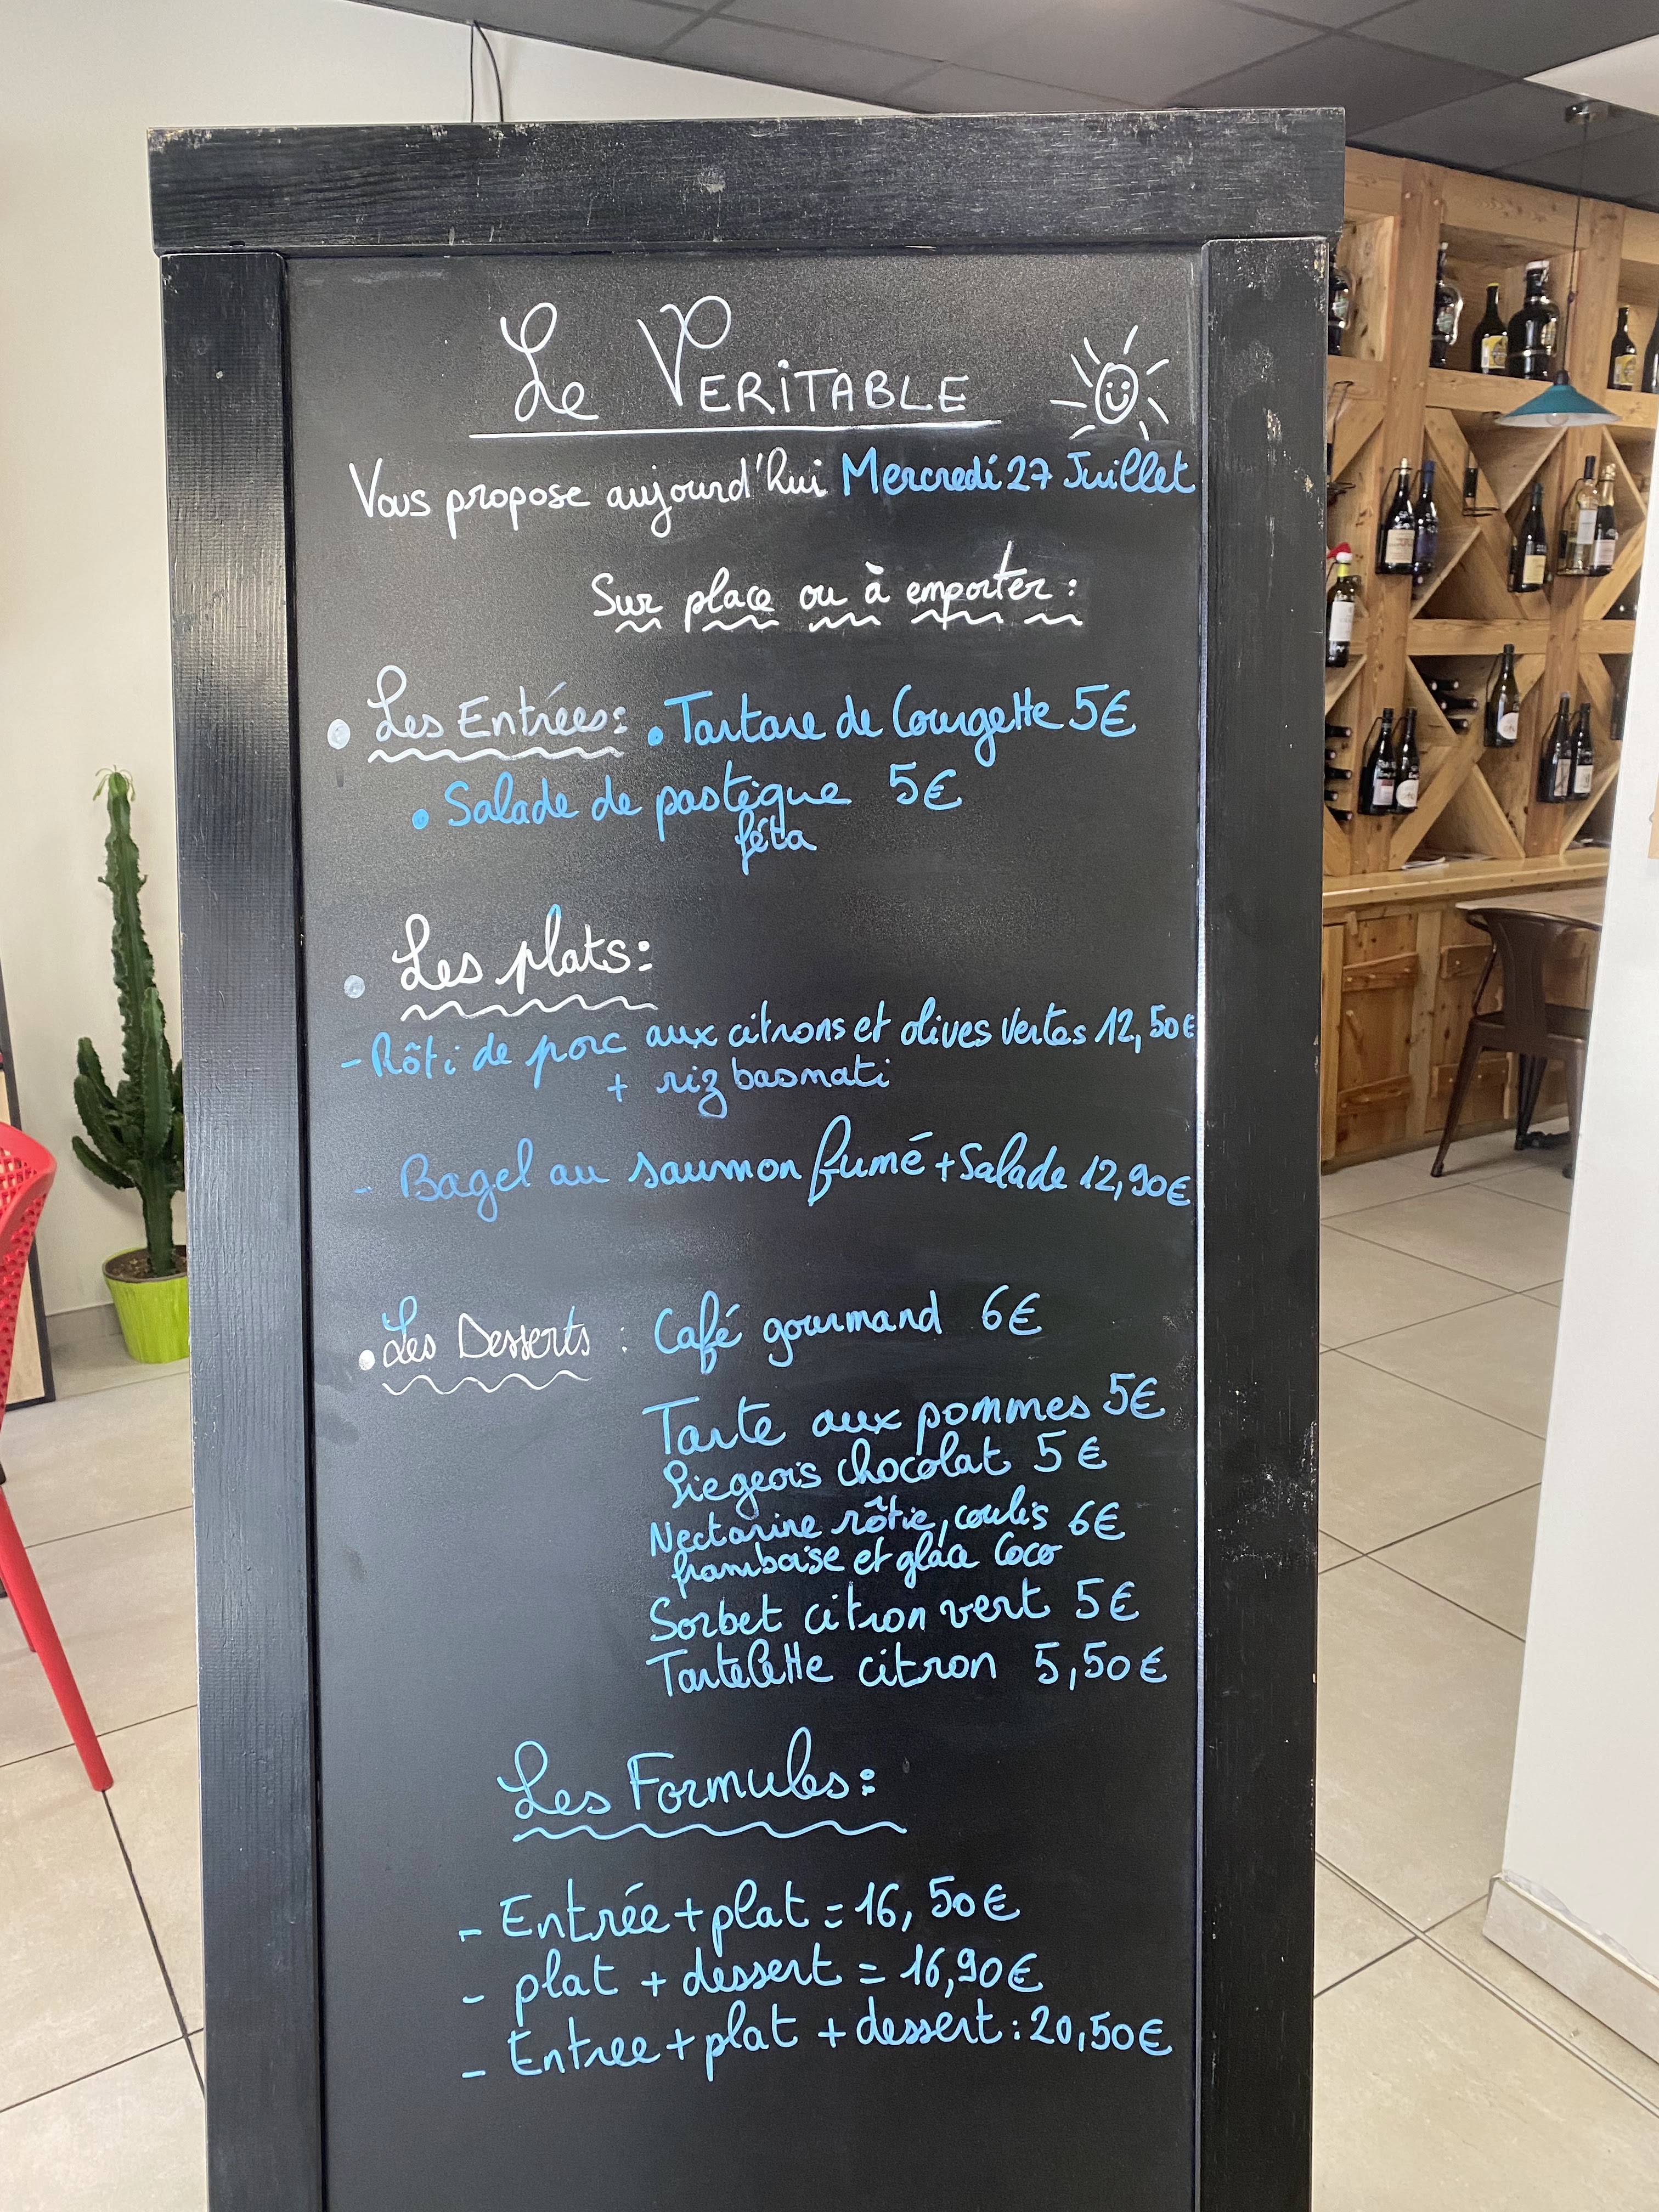 Le VERITABLE
Vous propose aujourd'hui Mercredi 27 Juillet
Sur place ou à emporter :
• Les Entrées : • Tartare de Courgette 5€
• Salade de pastèque 5€
féta
• Les plats :
- Rôti de porc aux citrons et olives vertes 12,50€
+ riz basmati
- Bagel au saumon fumé + Salade 12,90€
• Les Desserts : Café gourmand 6€
Tarte aux pommes 5€
Liegeois chocolat 5€
Nectarine rôtie, coulis 6€
framboise et glace Coco
Sorbet citron vert 5€
Tartelette citron 5,50€
Les Formules :
- Entrée + plat = 16,50€
- plat + dessert = 16,90€
- Entree + plat + dessert : 20,50€